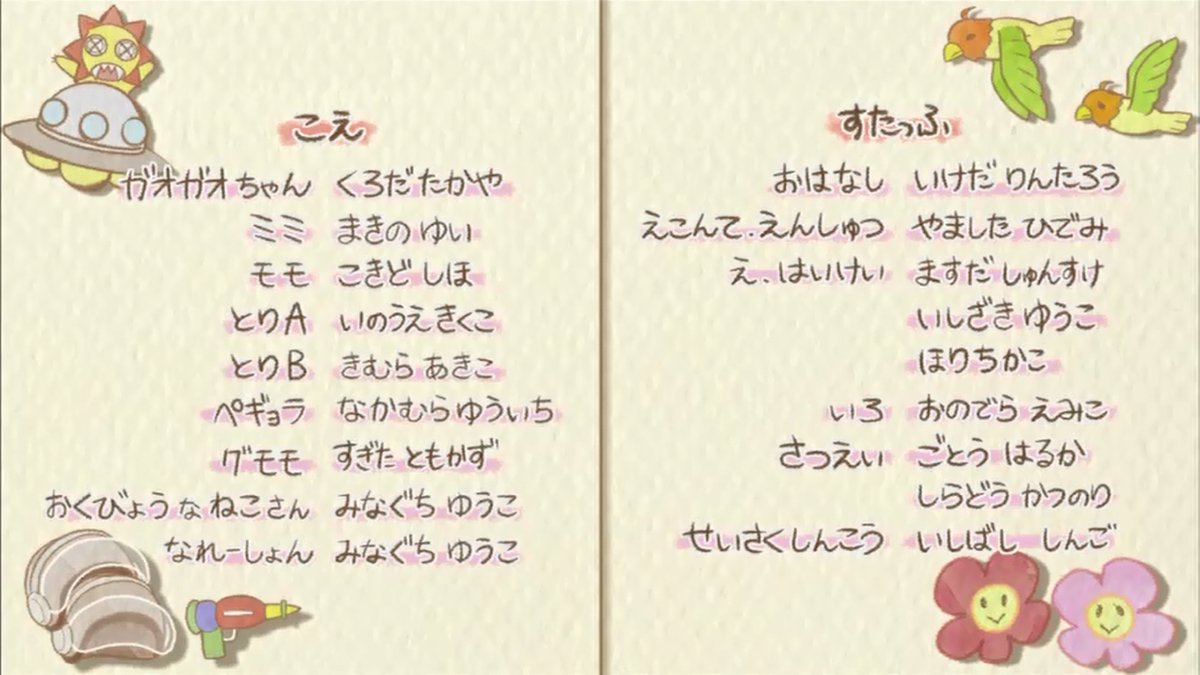 こえ
ガオガオちゃん くろだ たかや
ミミ まきの ゆい
モモ こきど しほ
とりA いのうえ きくこ
とりB きむら あきこ
ペギョラ なかむら ゆういち
グモモ すぎた ともかず
おくびょうなねこさん みなぐち ゆうこ
なれーしょん みなぐち ゆうこ
すたっふ
おはなし いけだ りんたろう
えこんて.えんしゅつ やました ひでみ
え.はいけい ますだ しゅんすけ
いしざき ゆうこ
ほり ちかこ
いろ おのでら えみこ
さつえい ごとう はるか
しらどう かつのり
せいさくしんこう いしばし しんご